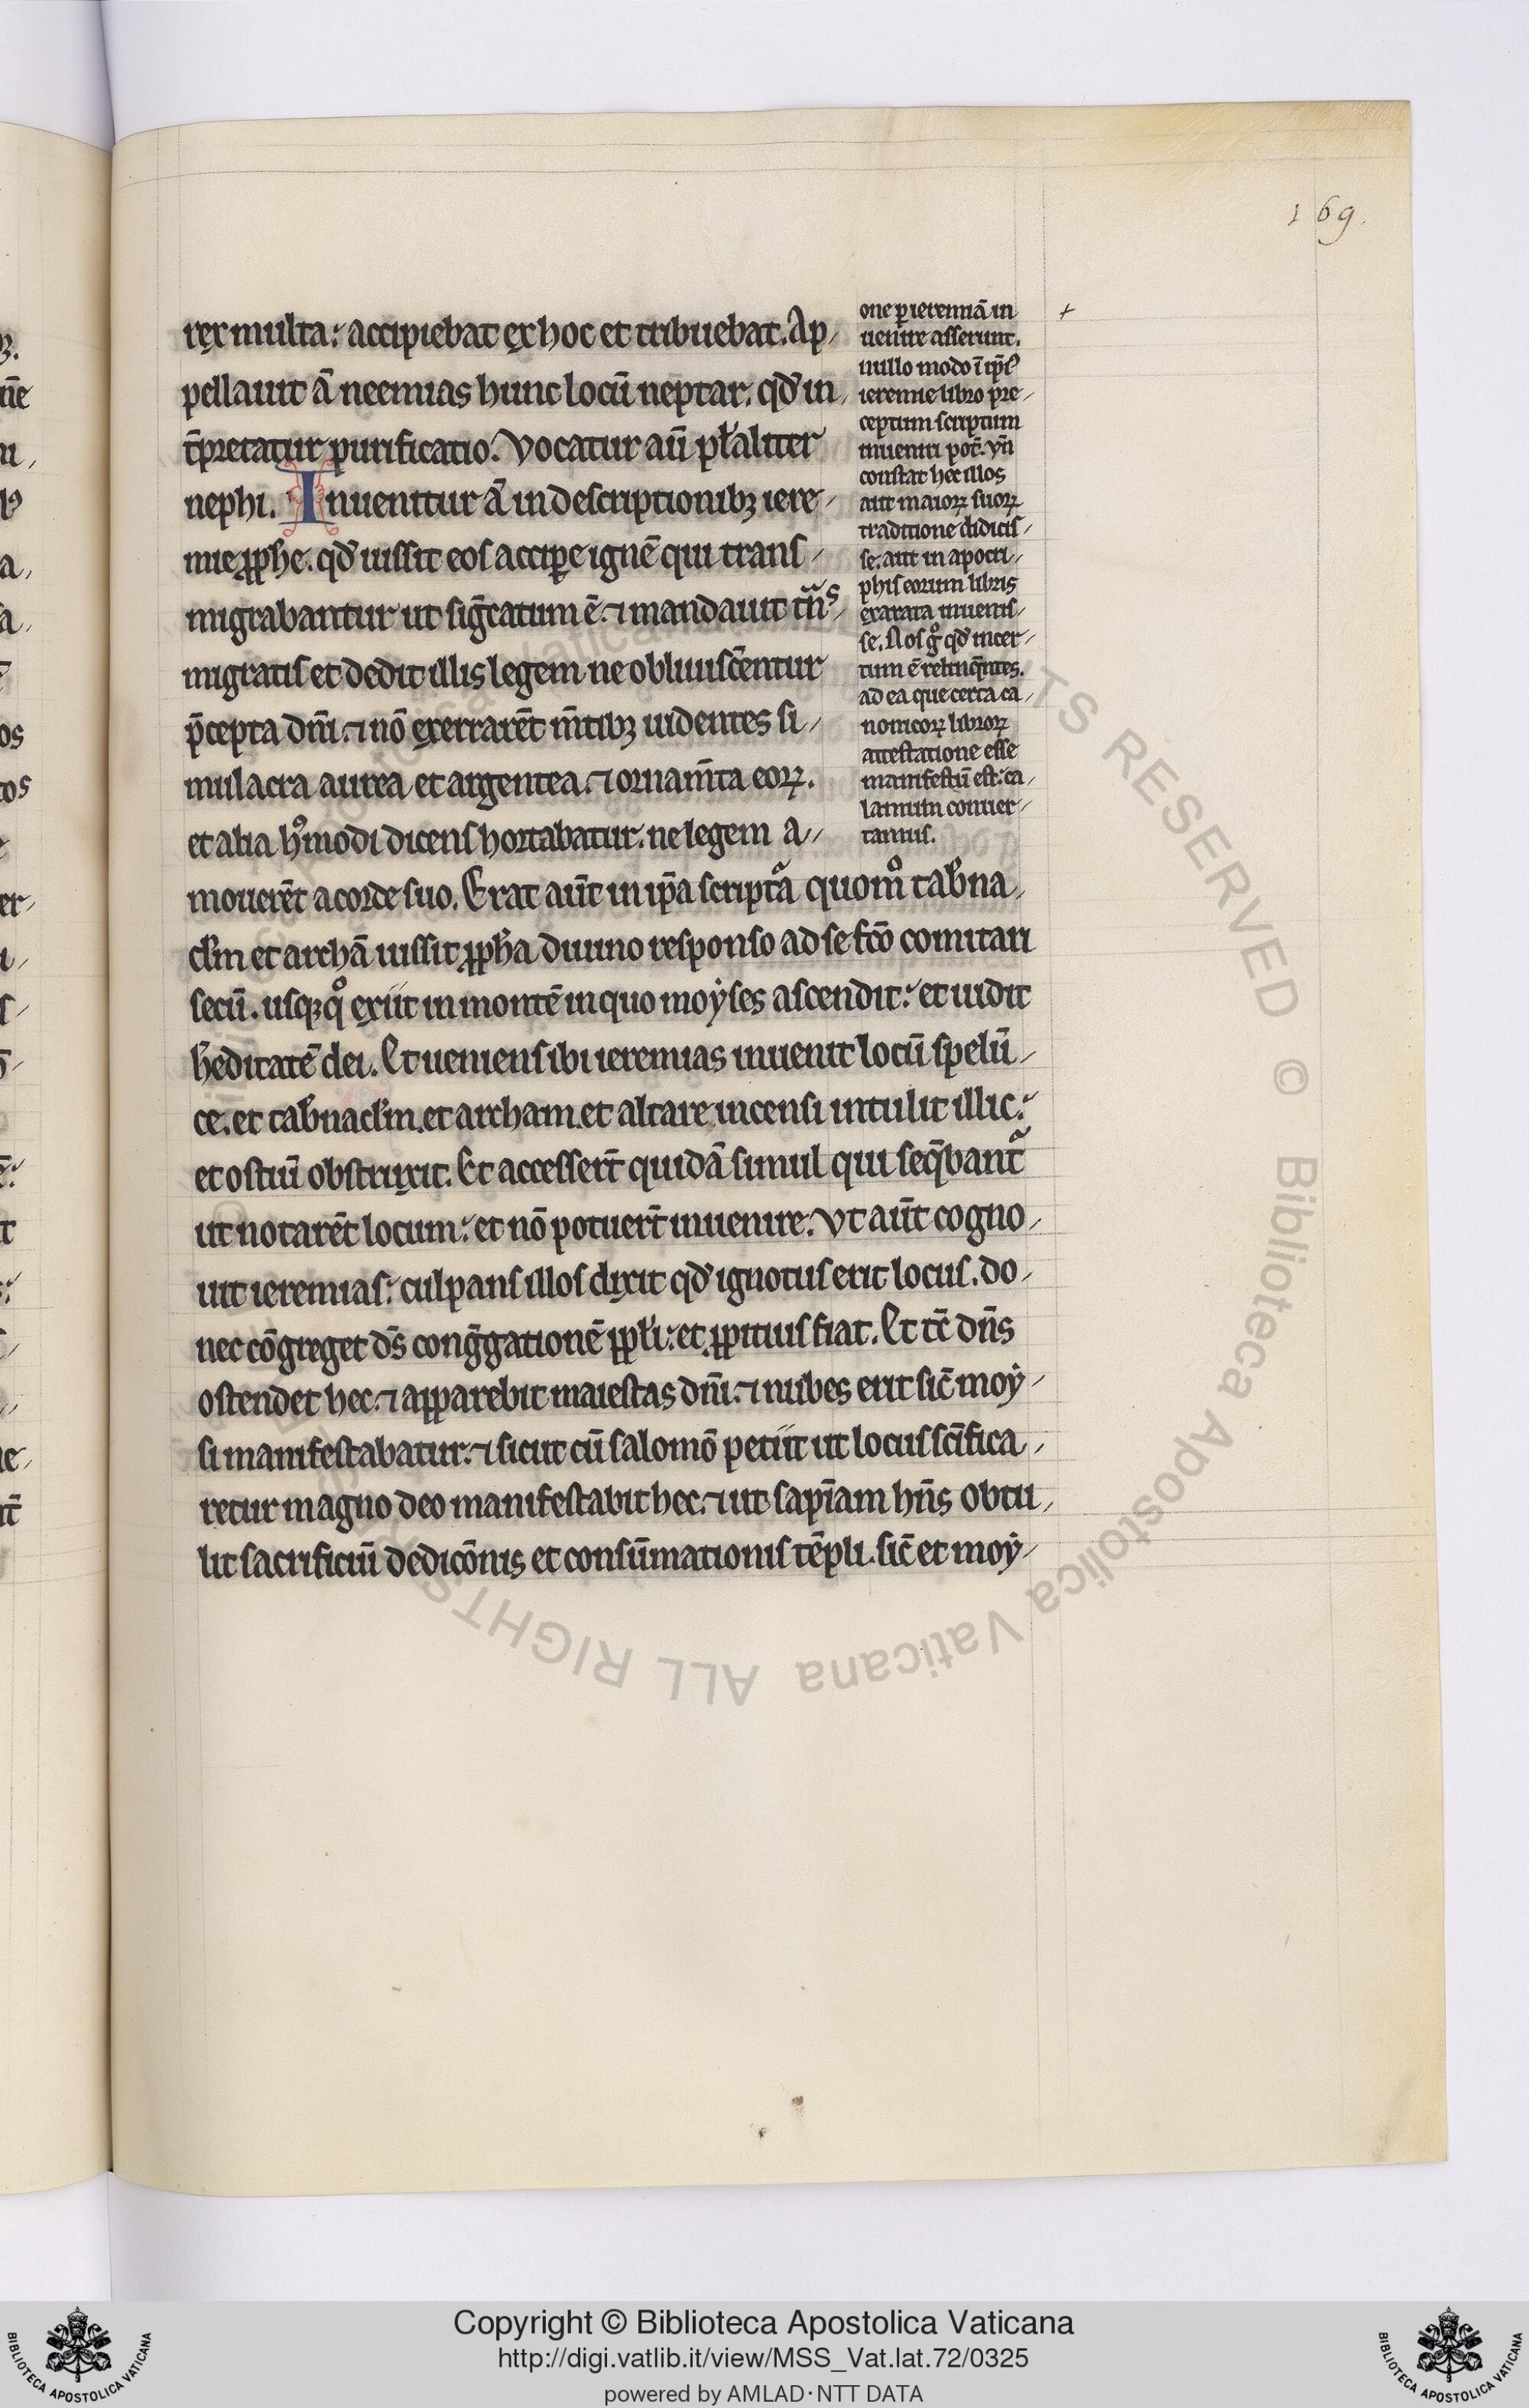 169.
rex multa: accipiebat ex hoc et tribuebat. Ap
pellauit ā neemias hunc locū neptar. qđ in
t̄pretatur purificatio. Vocatur aū pl̄aliter
nephi. Inuenitur ā in descriptionibꝫ iere
mie ꝓphe. qđ iussit eos accipe ignē qui trans
migrabantur ut sig̅catum ē. ⁊ mandauit tn̄s
migratis et dedit illis legem ne obliuiscēntur
p̄cepta dn̄i. ⁊ nō exerrarēt m̄tibꝫ uidentes si
mulacra aurea et argentea. ⁊ ornam̄ta eoꝝ.
et alia hͦmodi dicens hortabatur. ne legem a
mouerēt a corde suo. Erat aūt in ip̄a scriptᵃ quomͦ tab̄na
cl̄m et archā iussit ꝓph̄a diuino responso ad se fc̄o comitari
secū. usqꝫ qͦ exiit in montē in quo moẏses ascendit: et uidit
h̄editatē dei. Et ueniens ibi ieremias inuenit locū spelū
ce. et tab̄nacl̄m. et archam. et altare incensi intulit illic:
et ostiū obstruxit. Et accesser̄t quidā simul qui seq̄bantᵃ
ut notarēt locum: et nō potuer̄t inuenire. Vt aūt cogno
uit ieremias: culpans illos dixit qđ ignotus erit locus. do
nec cōgreget d̄s congg̅ationē ppl̄i: et ꝓpitius fiat. Et tc̄ dn̄s
ostendet hec. ⁊ apparebit maiestas dn̄i. ⁊ nubes erit sic̄ moẏ
si manifestabatur. ⁊ sicut cū salomō petiit ut locus sc̄ifica
retur magno deo manifestabit hec. ⁊ ut sapīam hn̄s obtu
lit sacrificiū dedicōnis et consūmationis tēpli. sic̄ et moẏ
one p ieremiā in
uenire asserunt.
nullo modo ī ip̄ı
ieremie libro pre
ceptum scriptum
inueniri pot̄. yn̄
constat hec illos
aut maioꝝ suoꝝ
traditione didicis
se. aut in apocri
phis eorum libris
exarata inuenis
se. Nos gͦ qđ incer
tum ē relinq̄ntes.
ad ea que certa ca
nonicoꝝ libroꝝ
attestatione esse
manifestū est: ca
lamum conuer
tamus.
Copyright © Biblioteca Apostolica Vaticana
http://digi.vatlib.it/view/MSS_Vat.lat.72/0325
powered by AMLAD·NTT DATA
BIBLIOTECA APOSTOLICA VATICANA
BIBLIOTECA APOSTOLICA VATICANA
ALL RIGHTS RESERVED © Biblioteca Apostolica Vaticana